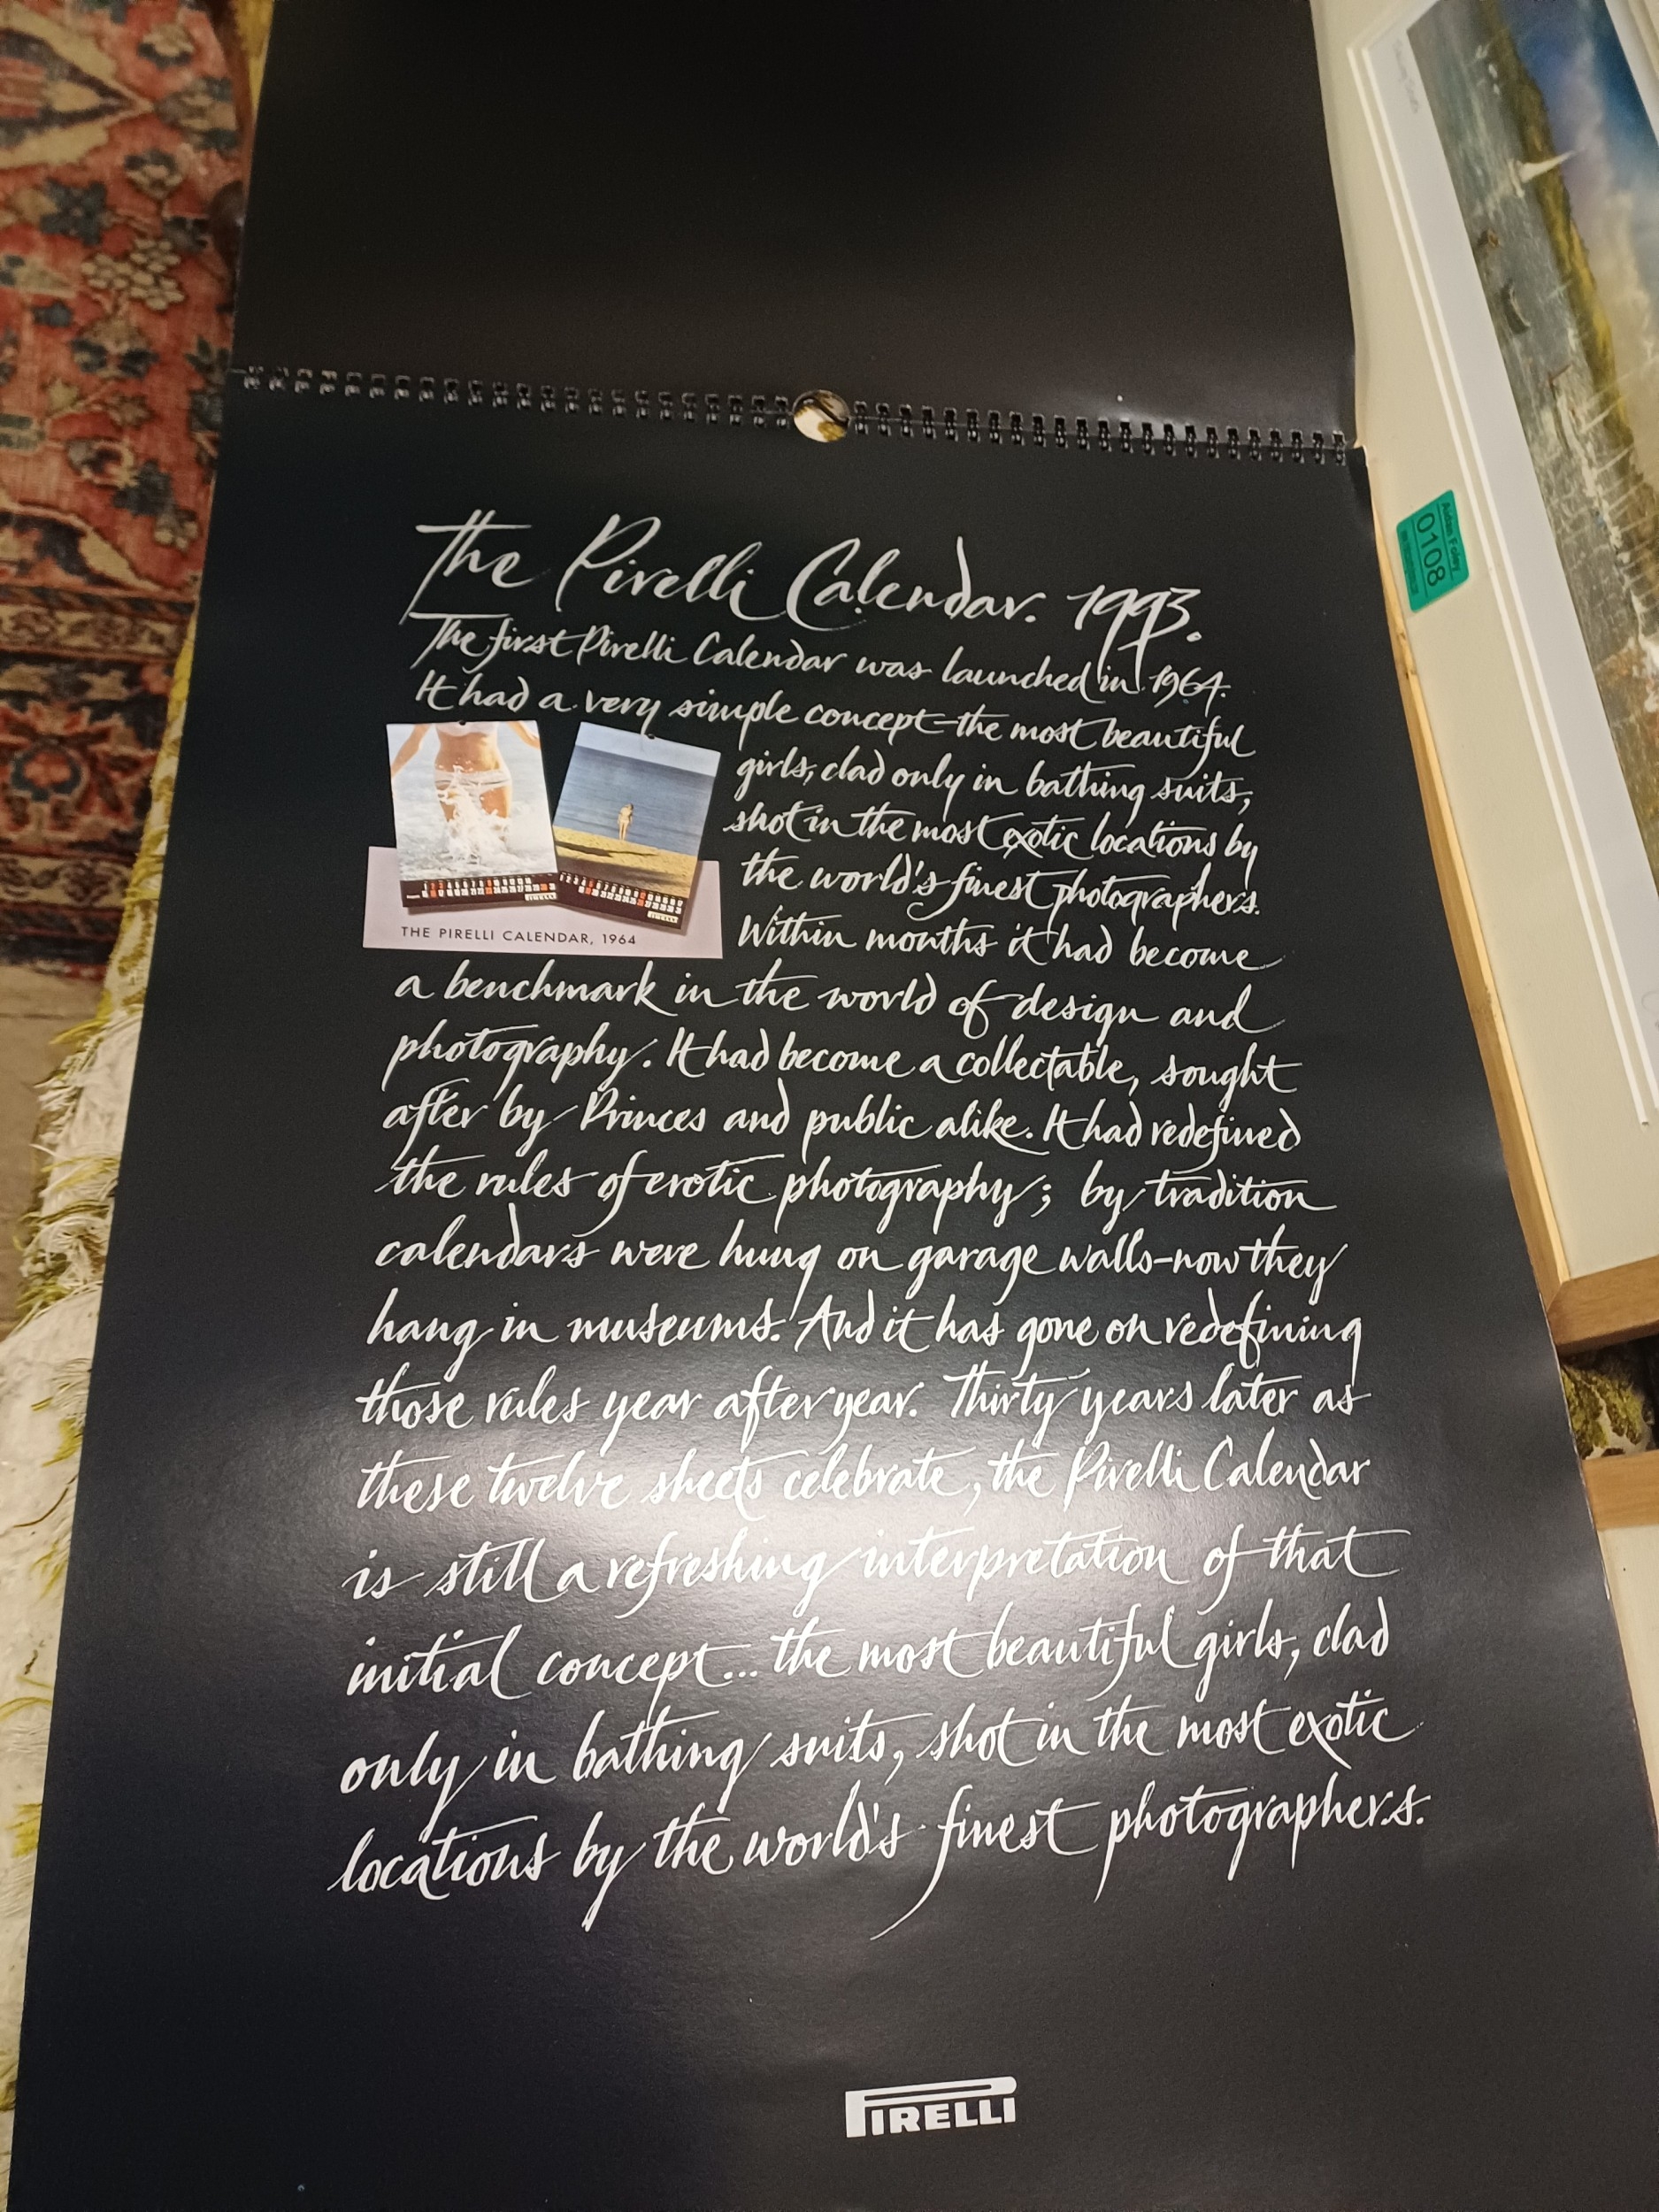 The Pirelli Calendar. 1993.
The first Pirelli Calendar was launched in 1964.
It had a very simple concept—the most beautiful
girls, clad only in bathing suits,
shot in the most exotic locations by
the world's finest photographers.
Within months it had become
THE PIRELLI CALENDAR, 1964
a benchmark in the world of design and
photography. It had become a collectable, sought
after by Princes and public alike. It had redefined
the rules of erotic photography; by tradition
calendars were hung on garage walls—now they
hang in museums. And it has gone on redefining
those rules year after year. Thirty years later as
these twelve sheets celebrate, the Pirelli Calendar
is still a refreshing interpretation of that
initial concept... the most beautiful girls, clad
only in bathing suits, shot in the most exotic
locations by the world's finest photographers.
PIRELLI
Aidan Foley
0108